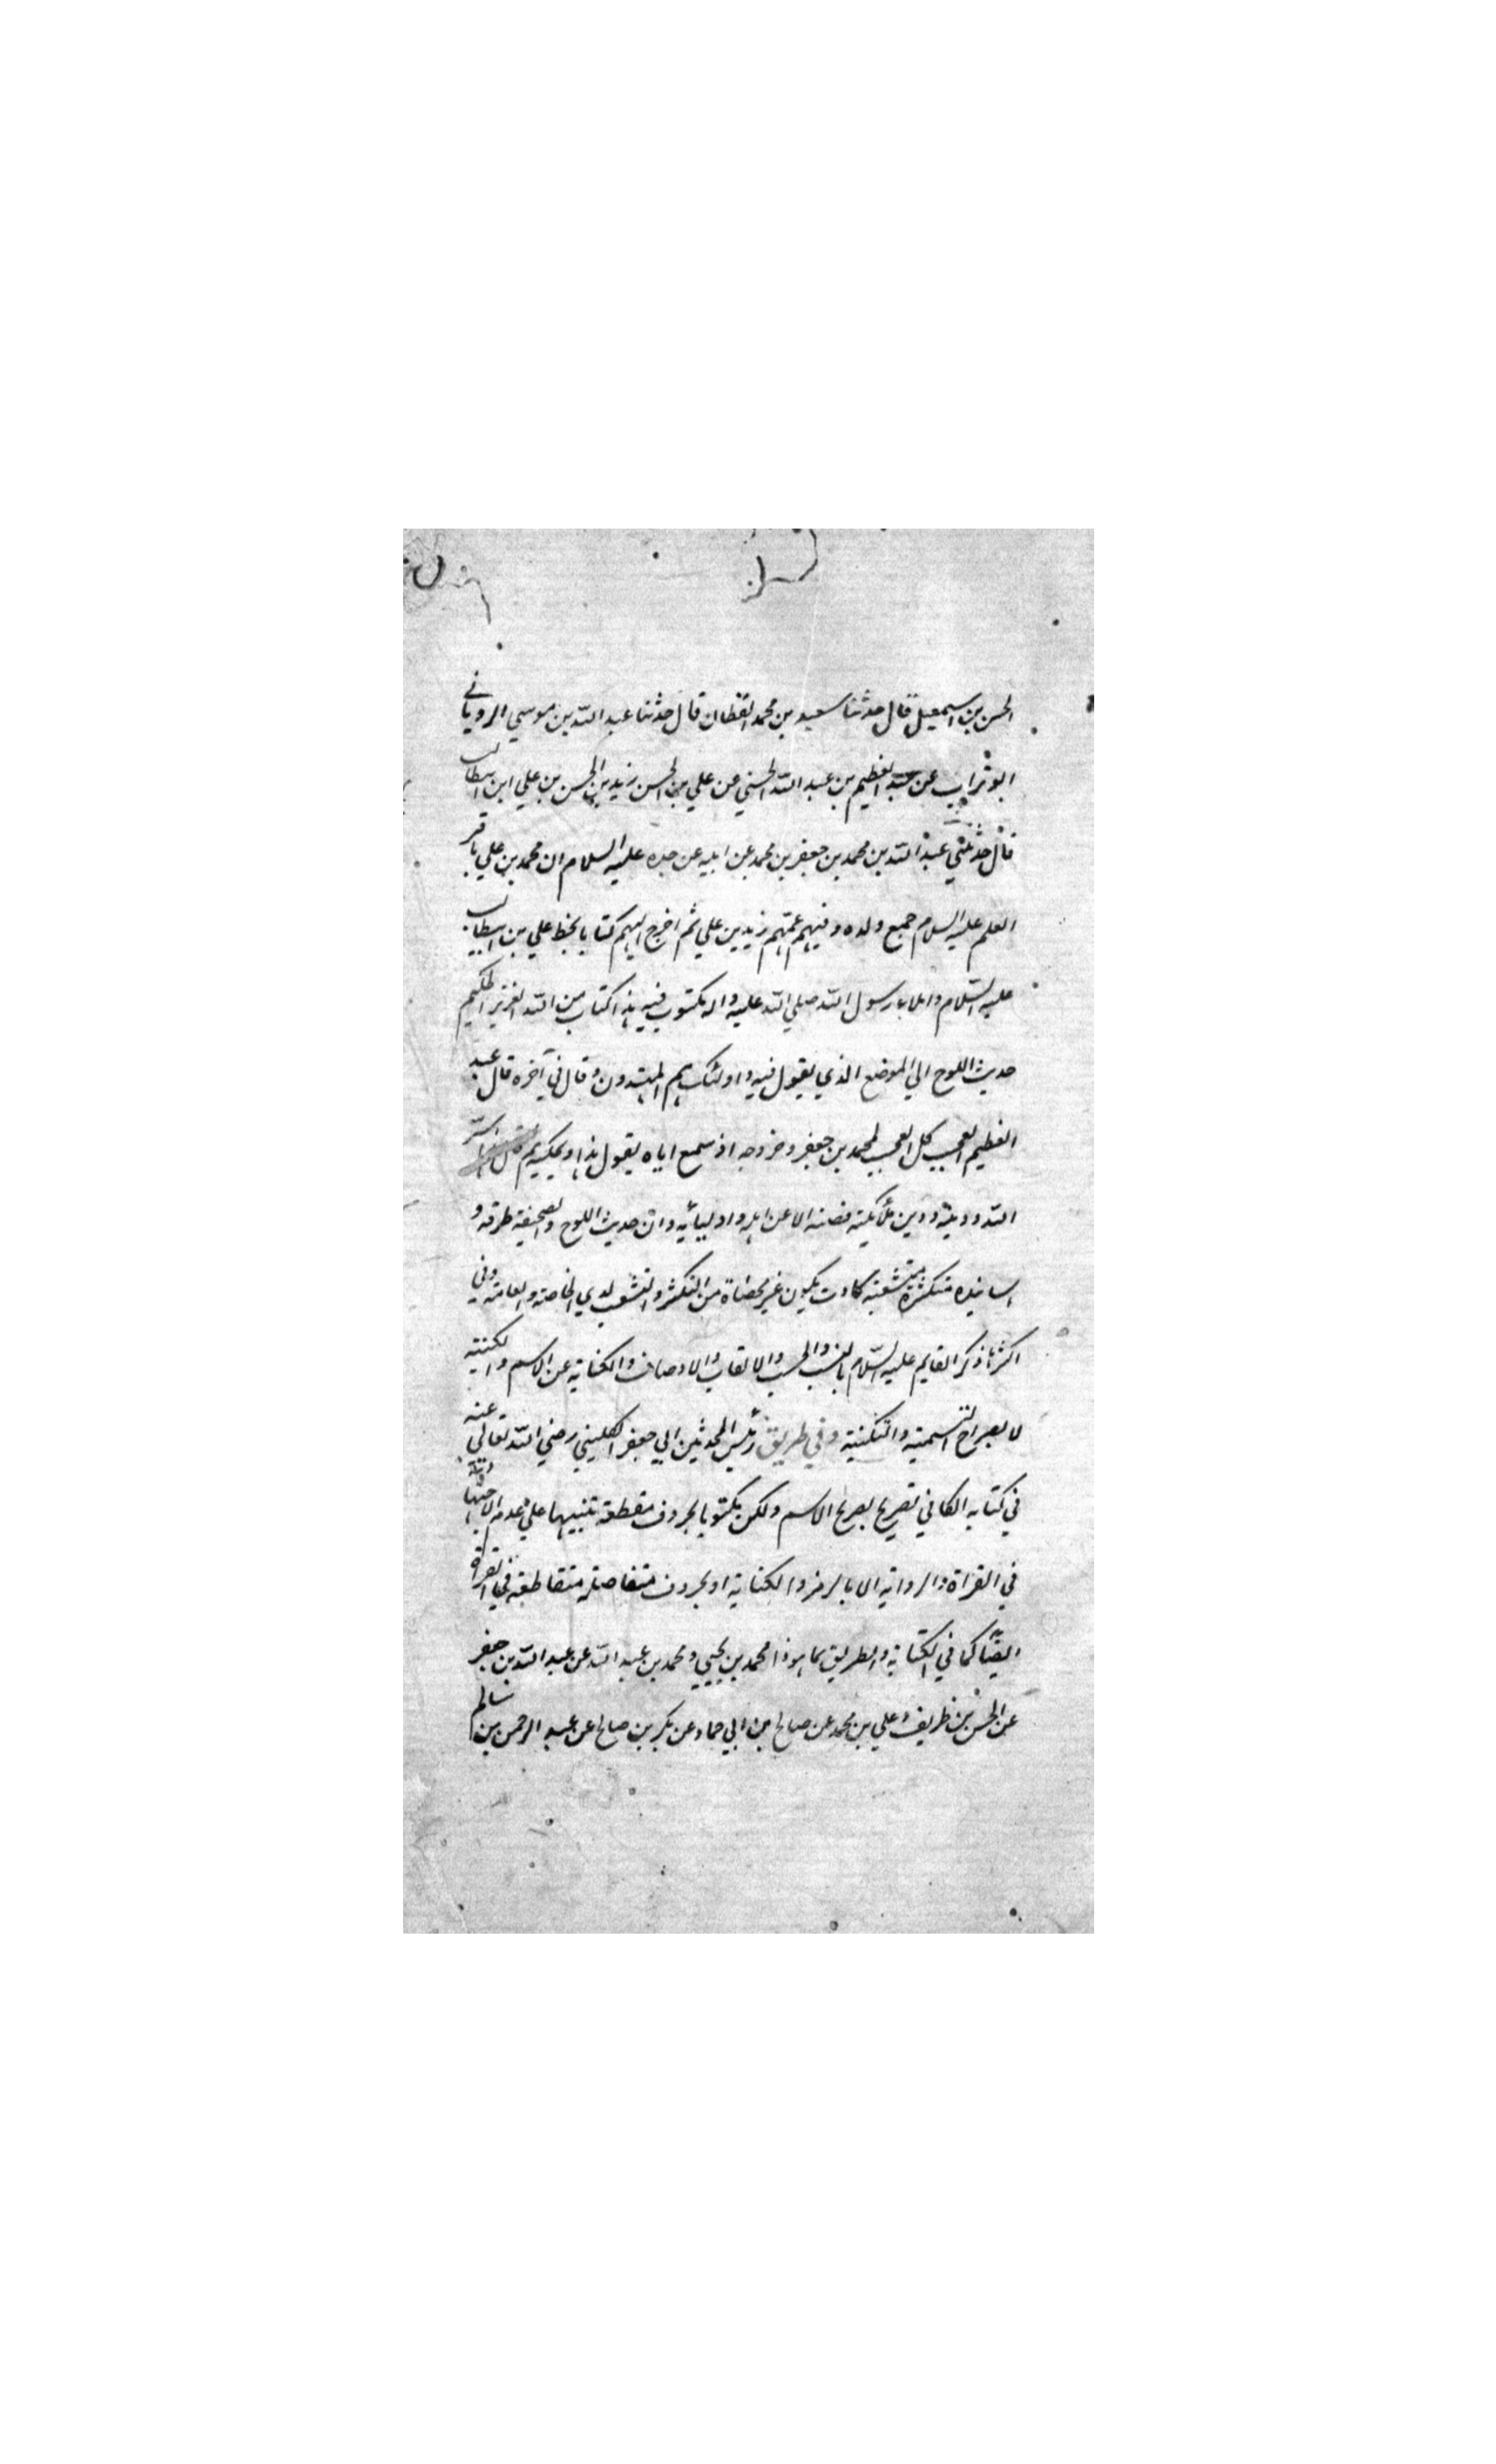 الحسن بن اسمعيل قال حدثنا سعيد بن محمد القطان قال حدثنا عبد الله بن موسي الروياني
ابو تراب عن عبد العظيم بن عبد الله الحسني عن علي بن الحسن زيد بن الحسن بن علي ابن ابيطالب
قال حدثني عبد الله بن محمد بن جعفر بن محمد عن ابيه عن جده عليه السلام ان محمد بن علي باقر
العلم عليه السلام جمع ولده وفيهم عمهم زيد بن علي ثم اخرج اليهم كتابا بخط علي بن ابيطالب
عليه السلام واملاء رسول الله صلي الله عليه واله مكتوب فيه هذا كتاب من الله العزيز الحكيم
حديث اللوح الي الموضع الذي يقول فيه واولئك هم المهتدون وقال في آخره قال عبد
العظيم العجب كل العجب لمحمد بن جعفر وخروجه اذ سمع اباه يقول هذا ويحكيه ثم قال هذا سر
الله ودينه ودين ملائكته فصنه الا عن اهله واوليائه وان حديث اللوح والصحيفة طرقه و
اسانيده متكثرة متشعبة كادت يكون غير محصاة من التكثر والتشعب لدي الخاصة والعامة وفي
اكثرها ذكر القايم عليه السلام بالنسب والحسب والالقاب والاوصاف والكناية عن الاسم والكنية
لا بصراح التسمية والتكنية وفي طريق رئيس المحدثين ابي جعفر الكليني رضي الله تعالي عنه
في كتابه الكافي تصريح بصريح الاسم ولكن مكتوبا بحروف مقطعة تنبيها علي عدم
في القراة والرواية الا بالرمز والكناية او بحروف متفاصلة متقاطعة في القراة
ايضا كما في الكتابة والطريق بما هو ذا محمد بن يحيي ومحمد بن عبد الله عن عبد الله بن جعفر
عن الحسن بن ظريف وعلي بن محمد عن صالح بن ابي حماد عن بكر بن صالح عن عبد الرحمن بن سالم